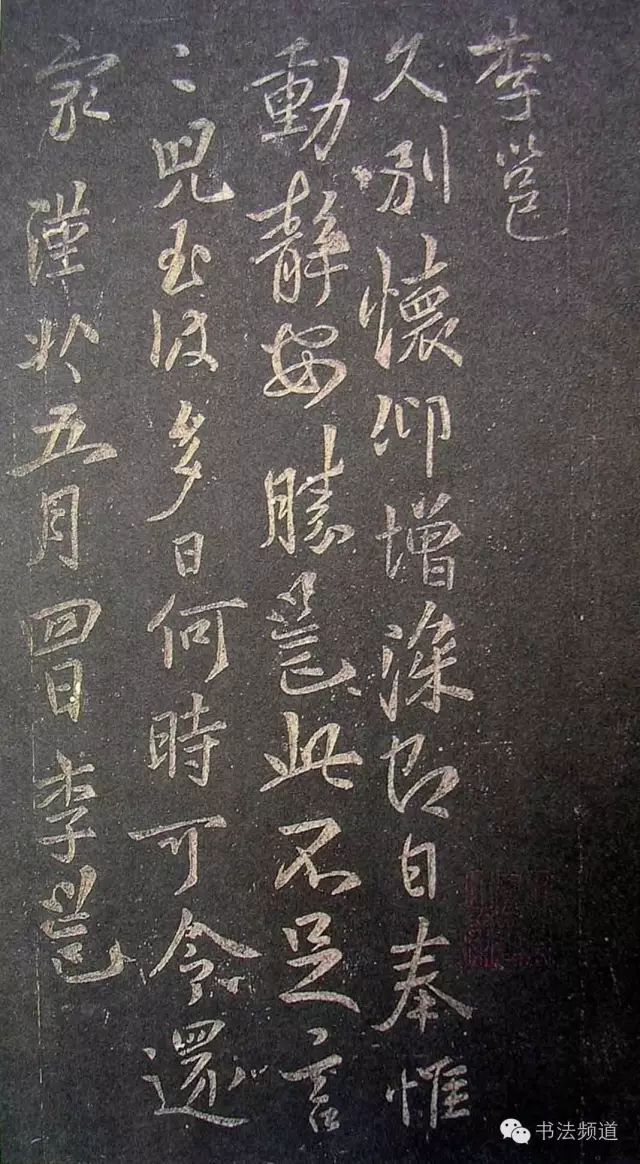 李邕
久別懷仰增深即日奉惟
動靜安勝邕此不足言
〻兒至彼多日何時可令還
家謹狀五月四日李邕
书法频道